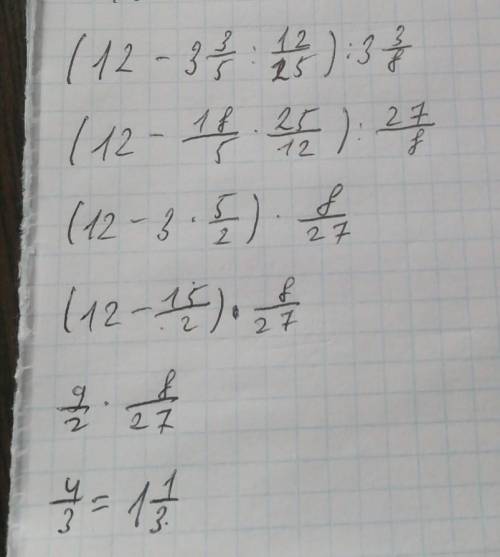 (12 - 3 3/5 : 12/25) : 3 3/8
(12 - 18/5 · 25/12) : 27/8
(12 - 3 · 5/2) · 8/27
(12 - 15/2) · 8/27
9/2 · 8/27
4/3 = 1 1/3